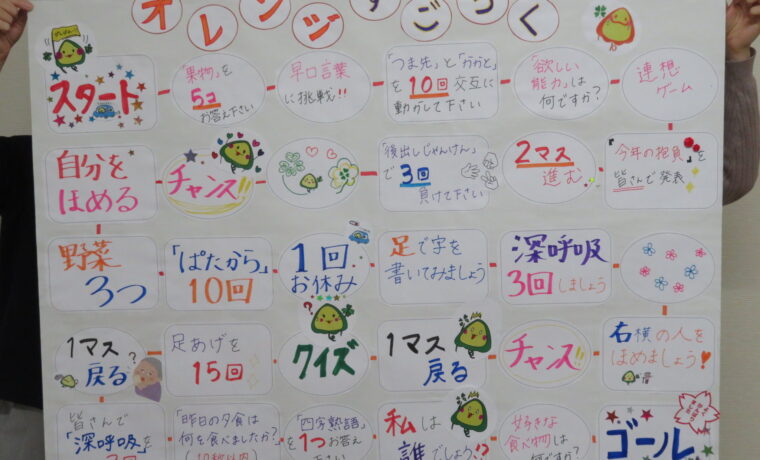 オレンジすごろく
スタート
「果物」を
5コ
お答え下さい
早口言葉
に挑戦!!
「つま先」と「かかと」
を10回交互に
動かして下さい
「欲しい
能力」は
何ですか?
連想
ゲーム
自分を
ほめる
チャンス!!
「後出しじゃんけん」
で3回
負けて下さい
2マス
進む
「今年の抱負」を
皆さんで発表
野菜
3つ
「ぱたから」
10回
1回
お休み
足で字を
書いてみましょう
深呼吸
3回しましょう
1マス
戻る
足あげを
15回
クイズ
1マス
戻る
チャンス!!
右横の人を
ほめましょう!
皆さんで
「深呼吸」を
「昨日の夕食は
何を食べましたか?
「四字熟語」
を1つお答え
下さい
私は
誰でしょう!?
好きな
食べ物は
何ですか?
ゴール